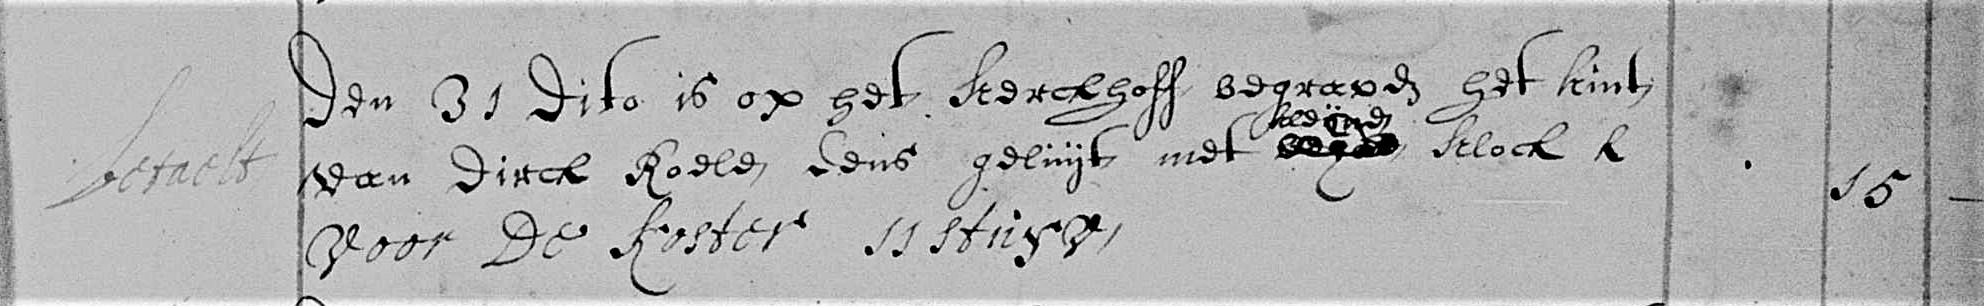 Den 31 Dito is op het kerckhoff begraven het kint
betaelt van Dirck Koele, Eens geluijt met kleijne klock k . 15 —
voor De koster 11 stuyv,